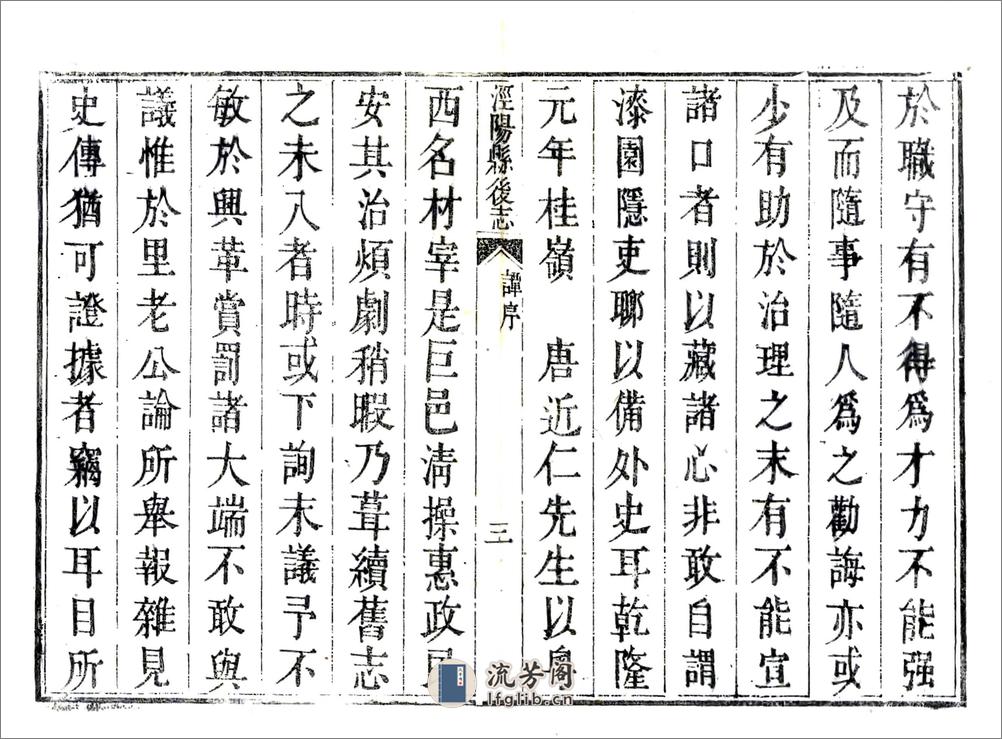 於職守有不得爲才力不能强
及而隨事隨人爲之勸誨亦或
少有助於治理之末有不能宣
諸口者則以藏諸心非敢自謂
漆園隱吏聊以備外史耳乾隆
元年桂嶺 唐近仁先生以粵
涇陽縣後志 譚序 三
西名材宰是巨邑清操惠政民
安其治煩劇稍暇乃葺續舊志
之未入者時或下詢末議予不
敏於興革賞罰諸大端不敢與
議惟於里老公論所舉報雜見
史傳猶可證據者竊以耳目所
流芳阁
lfglib.cn